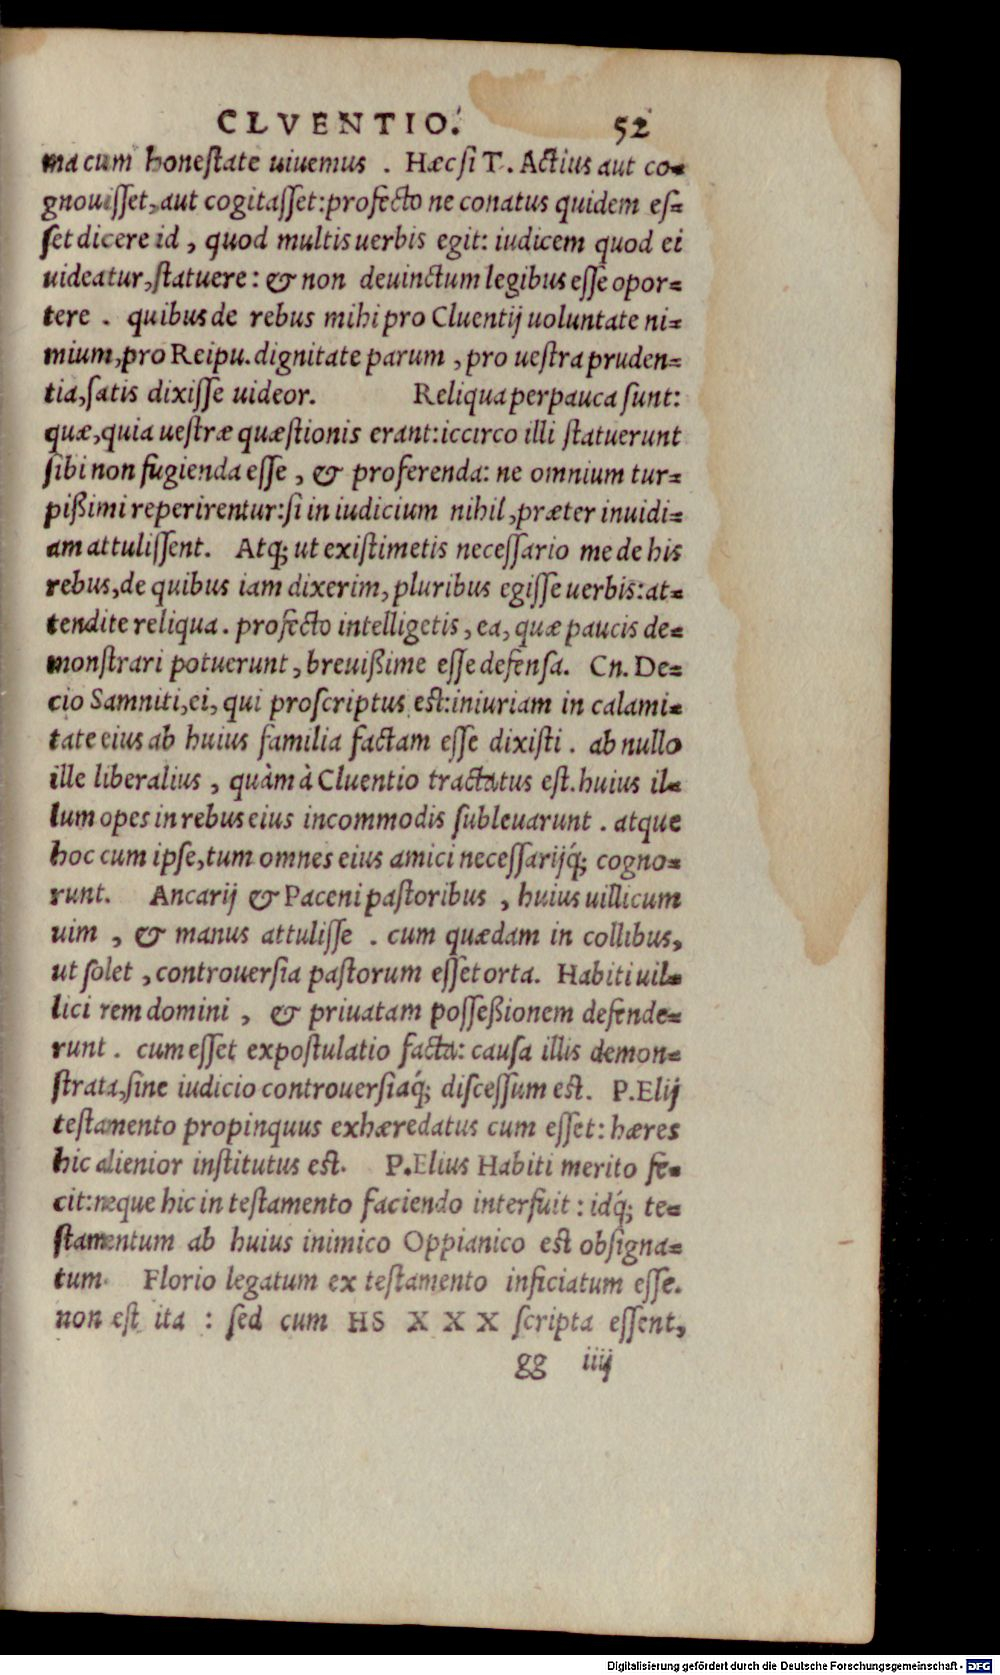 CLVENTIO. 52
ma cum honeſtate uiuemus . Hæc ſi T. Actius aut co-
gnouiſſet, aut cogitaſſet: profecto ne conatus quidem eſ-
ſet dicere id , quod multis uerbis egit: iudicem quod ei
uideatur, ſtatuere: & non deuinctum legibus eſſe opor-
tere . quibus de rebus mihi pro Cluentij uoluntate ni-
mium, pro Reipu. dignitate parum , pro ueſtra pruden-
tia, ſatis dixiſſe uideor. Reliqua perpauca ſunt:
quæ, quia ueſtræ quæſtionis erant: iccirco illi ſtatuerunt
ſibi non fugienda eſſe , & proferenda: ne omnium tur-
pißimi reperirentur: ſi in iudicium nihil, præter inuidi-
am attuliſſent. Atq; ut exiſtimetis neceſſario me de his
rebus, de quibus iam dixerim, pluribus egiſſe uerbis: at-
tendite reliqua. profecto intelligetis, ea, quæ paucis de-
monſtrari potuerunt, breuißime eſſe defenſa. Cn. De-
cio Samniti, ei, qui proſcriptus eſt: iniuriam in calami-
tate eius ab huius familia factam eſſe dixiſti. ab nullo
ille liberalius , quàm à Cluentio tractatus eſt. huius il-
lum opes in rebus eius incommodis ſubleuarunt . atque
hoc cum ipſe, tum omnes eius amici neceſſarijq́; cogno-
runt. Ancarij & Paceni paſtoribus , huius uillicum
uim , & manus attuliſſe . cum quædam in collibus,
ut ſolet , controuerſia paſtorum eſſet orta. Habiti uil-
lici rem domini , & priuatam poſſeßionem defende-
runt . cum eſſet expoſtulatio facta: cauſa illis demon-
ſtrata, ſine iudicio controuerſiaq́; diſceſſum eſt. P. Elij
teſtamento propinquus exhæredatus cum eſſet: hæres
hic alienior inſtitutus eſt. P. Elius Habiti merito fe-
cit: neque hic in teſtamento faciendo interfuit : idq́; te-
ſtamentum ab huius inimico Oppianico eſt obſigna-
tum. Florio legatum ex teſtamento inficiatum eſſe.
non eſt ita : ſed cum HS X X X ſcripta eſſent,
gg iiij
Digitalisierung gefördert durch die Deutsche Forschungsgemeinschaft - DFG